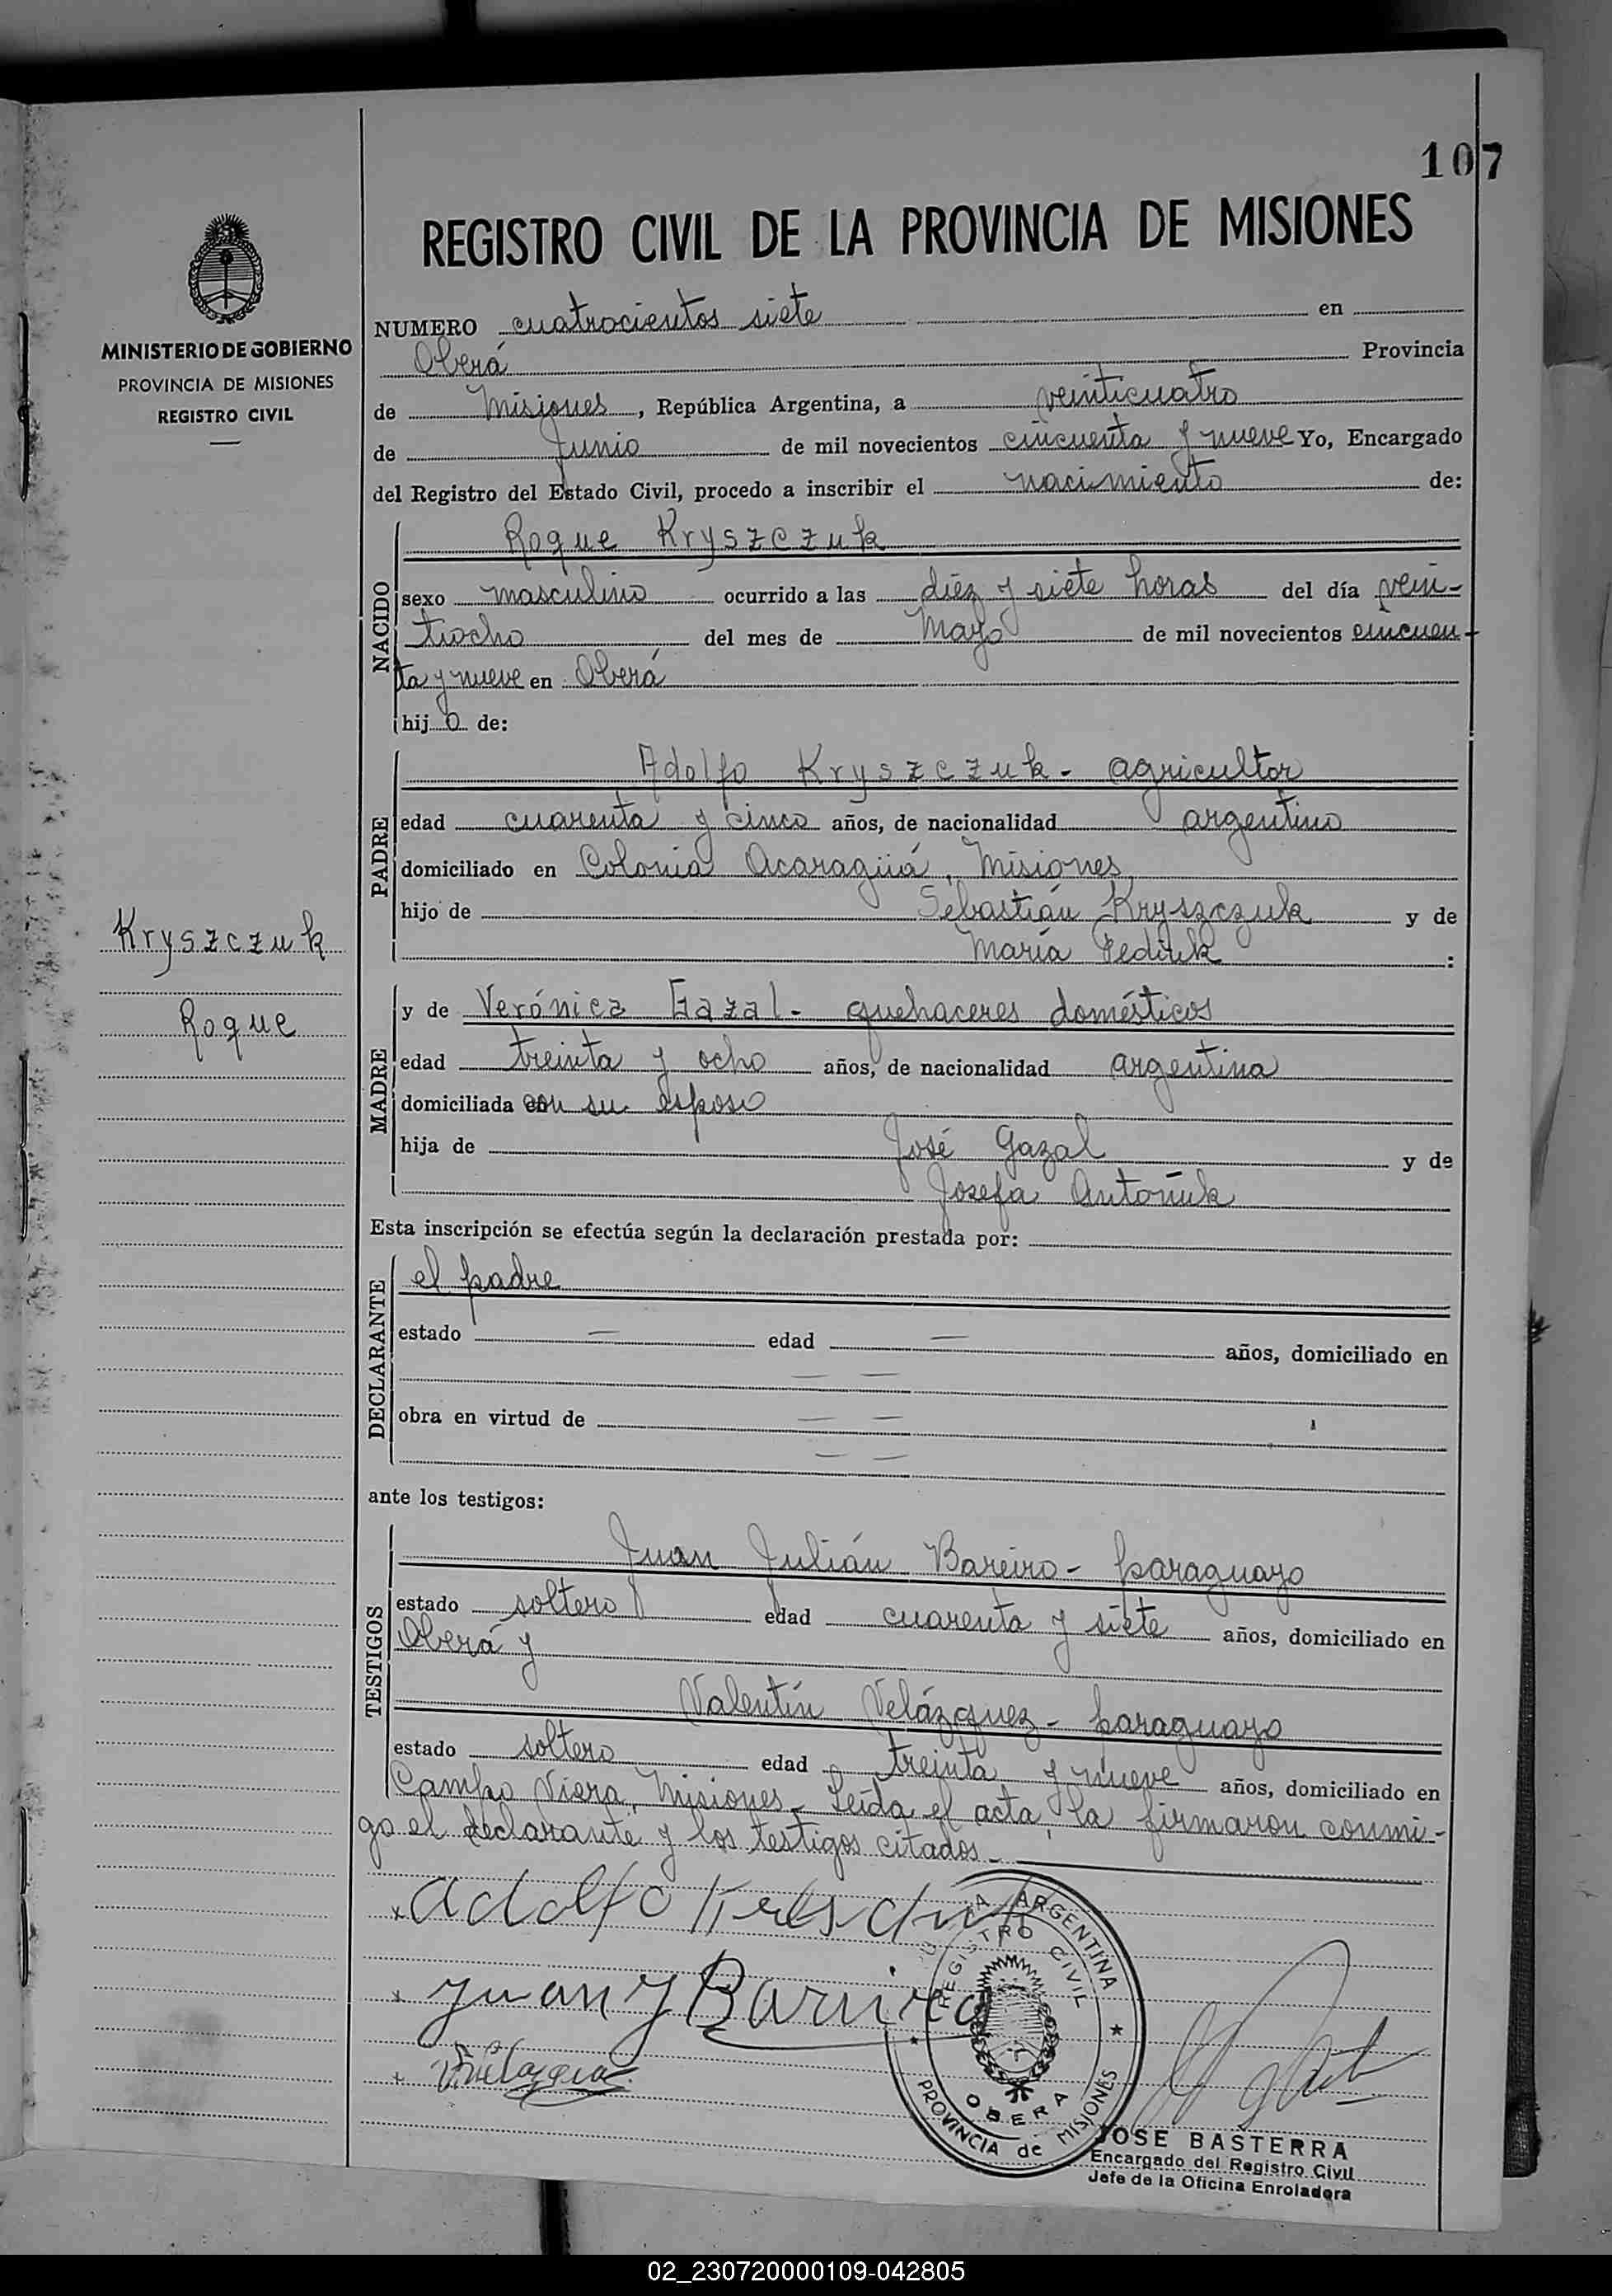 107
REGISTRO CIVIL DE LA PROVINCIA DE MISIONES
MINISTERIO DE GOBIERNO
PROVINCIA DE MISIONES
REGISTRO CIVIL
NUMERO cuatrocientos siete en
Oberá Provincia
de Misiones, República Argentina, a veinticuatro
de Junio de mil novecientos cincuenta y nueve Yo, Encargado
del Registro del Estado Civil, procedo a inscribir el nacimiento de:
NACIDO
Roque Kryszczuk
sexo masculino ocurrido a las diez y siete horas del día vein-
tiocho del mes de Mayo de mil novecientos cincuen
ta y nueve en Oberá
hijo de:
PADRE
Adolfo Kryszczuk - agricultor
edad cuarenta y cinco años, de nacionalidad argentino
domiciliado en Colonia Acaragüá, Misiones
hijo de Sebastián Kryszczuk y de
María Fediuk :
Kryszczuk
Roque
MADRE
y de Verónica Gazal - quehaceres domésticos
edad treinta y ocho años, de nacionalidad argentina
domiciliada con su esposo
hija de José Gazal y de
Josefa Antoniuk
Esta inscripción se efectúa según la declaración prestada por:
DECLARANTE
el padre
estado — edad — años, domiciliado en
— —
obra en virtud de — —
— —
ante los testigos:
TESTIGOS
Juan Julián Bareiro - paraguayo
estado soltero edad cuarenta y siete años, domiciliado en
Oberá y
Valentín Velázquez - paraguayo
estado soltero edad treinta y nueve años, domiciliado en
Campo Viera, Misiones - Leída el acta, la firmaron conmi-
go el declarante y los testigos citados -
x Adolfo
x Juan J Barriro
x
ARGENTINA
REGISTRO CIVIL
OBERA
PROVINCIA de MISIONES
JOSE BASTERRA
Encargado del Registro Civil
Jefe de la Oficina Enroladora
02_230720000109-042805